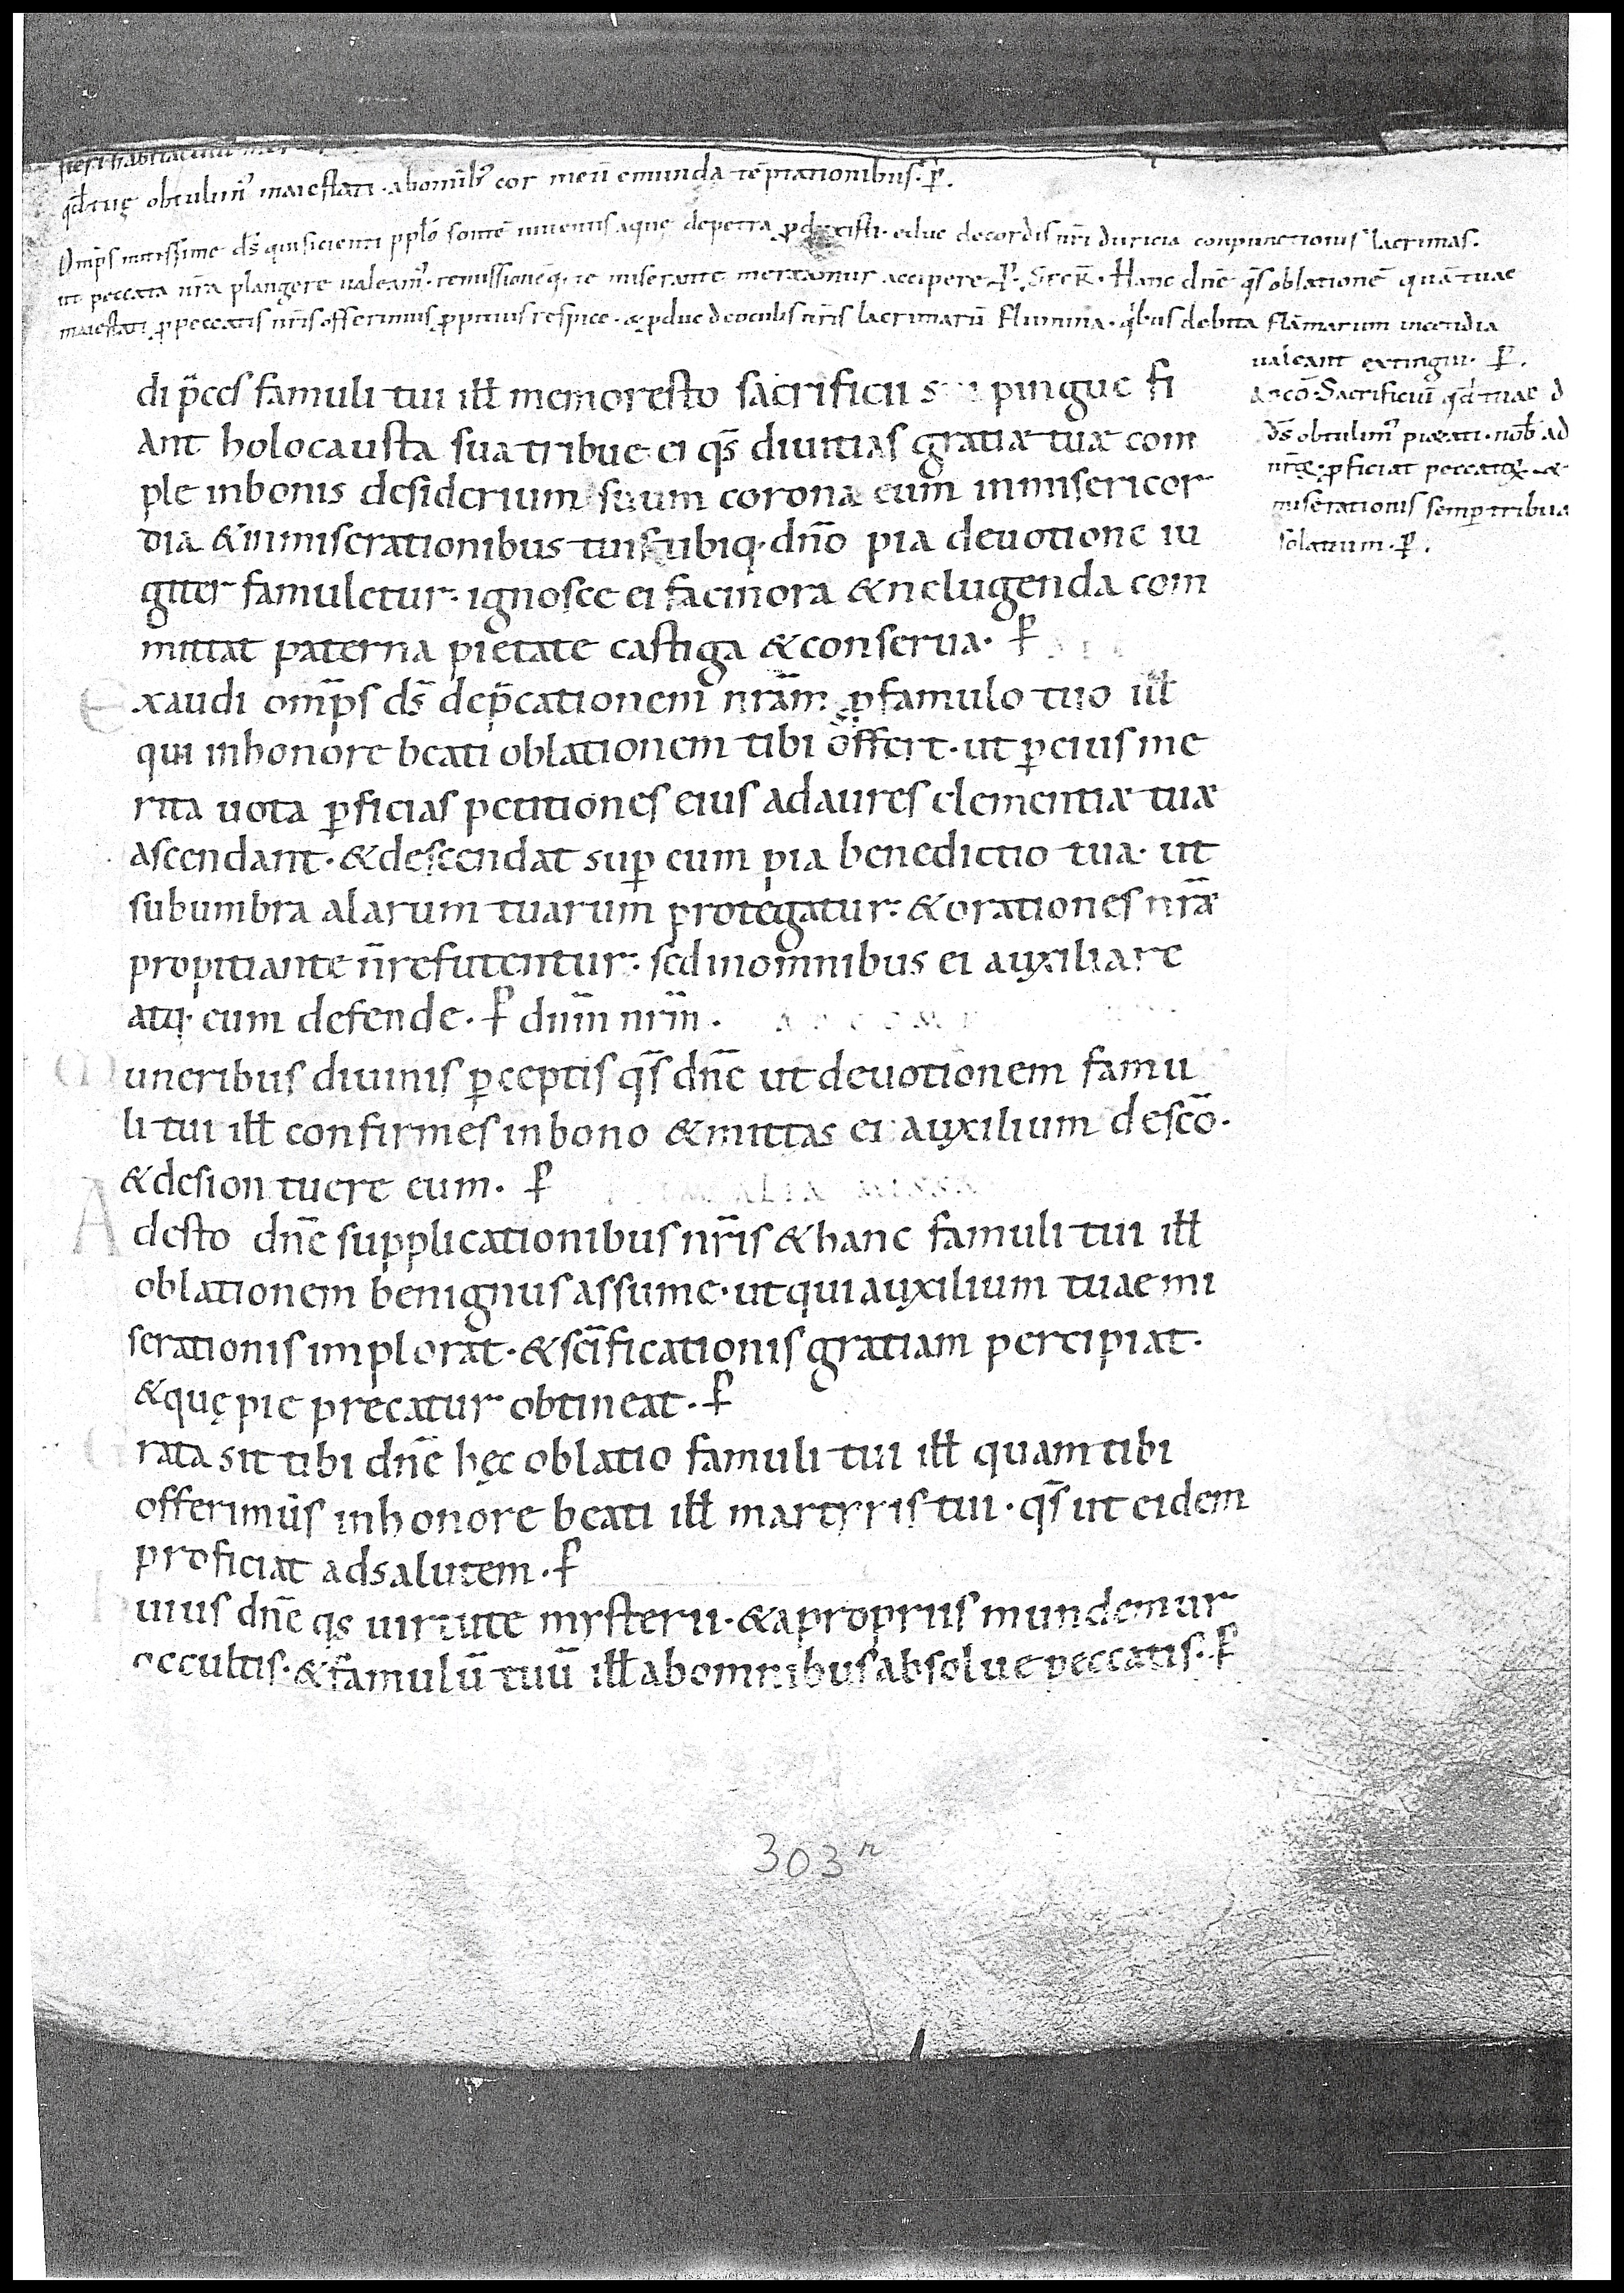 fieri habitaculum
qd̄ tuę obtulim᾽ maiestati · ab omīb᾽ cor meū emunda tēptationibus · ꝑ.
Omp̄s mitissime ds̄ qui sicienti pplō fontē uiuentis aque de petra ꝓduxisti · educ de cordis nr̄i duricia conpunctionis lacrimas ·
ut peccata nr̄a plangere ualeam᾽ · remissionēq· te miserante mereamur accipere · ꝑ · Secr̄ · Hanc dnē qs̄ oblationē quā tuae
maiestati ꝓ peccatis nr̄is offerimus ꝓpitius respice · & ꝓduc de oculis nr̄is lacrimarū flumina · qͥbus debita flāmarum incendia
ualeant extingui · ꝑ.
Ad cō Sacrificiū qd̄ tuae d
ds̄ obtulim᾽ pietati · nob̄ ad
nr̄oꝝ · ꝓficiat peccatoꝝ · &
miserationis semꝑ tribua
solatium · ꝑ.
di p̄ces famuli tui ill̄ memor esto sacrificii pingue fi
ant holocausta sua tribue ei qs̄ diuitias gratiæ tuæ com
ple in bonis desiderium suum corona eum in misericor
dia & in miserationibus tuis ubiq· dnō pia deuotione iu
giter famuletur · ignosce ei facinora & ne lugenda com
mittat paterna pietate castiga & conserua · ꝑ
Exaudi omp̄s ds̄ dep̄cationem nr̄am ꝓ famulo tuo ill̄
qui in honore beati oblationem tibi offert · ut ꝑ eius me
rita uota ꝑficias petitiones eius ad aures clementiæ tuæ
ascendant · & descendat suꝑ eum pia benedictio tua · ut
sub umbra alarum tuarum protegatur · & orationes nr̄æ
propitiante n̄ refutentur · sed in omnibus ei auxiliare
atq· eum defende · ꝑ dnm̄ nrm̄ · AD COM
Muneribus diuinis ꝑceptis qs̄ dnē ut deuotionem famu
li tui ill̄ confirmes in bono & mittas ei auxilium de scō ·
& de sion tuere eum · ꝑ ALIA MISSA
Adesto dnē supplicationibus nr̄is & hanc famuli tui ill̄
oblationem benignus assume · ut qui auxilium tuae mi
serationis implorat · & scīficationis gratiam percipiat ·
& quę pie precatur obtineat · ꝑ
Grata sit tibi dnē hęc oblatio famuli tui ill̄ quam tibi
offerimus in honore beati ill̄ martyris tui · qs̄ ut eidem
proficiat ad salutem · ꝑ
Huius dnē qs uirtute mysterii · & a propriis mundemur
occultis · & famulū tuū ill̄ ab omnibus absolue peccatis · ꝑ
303r